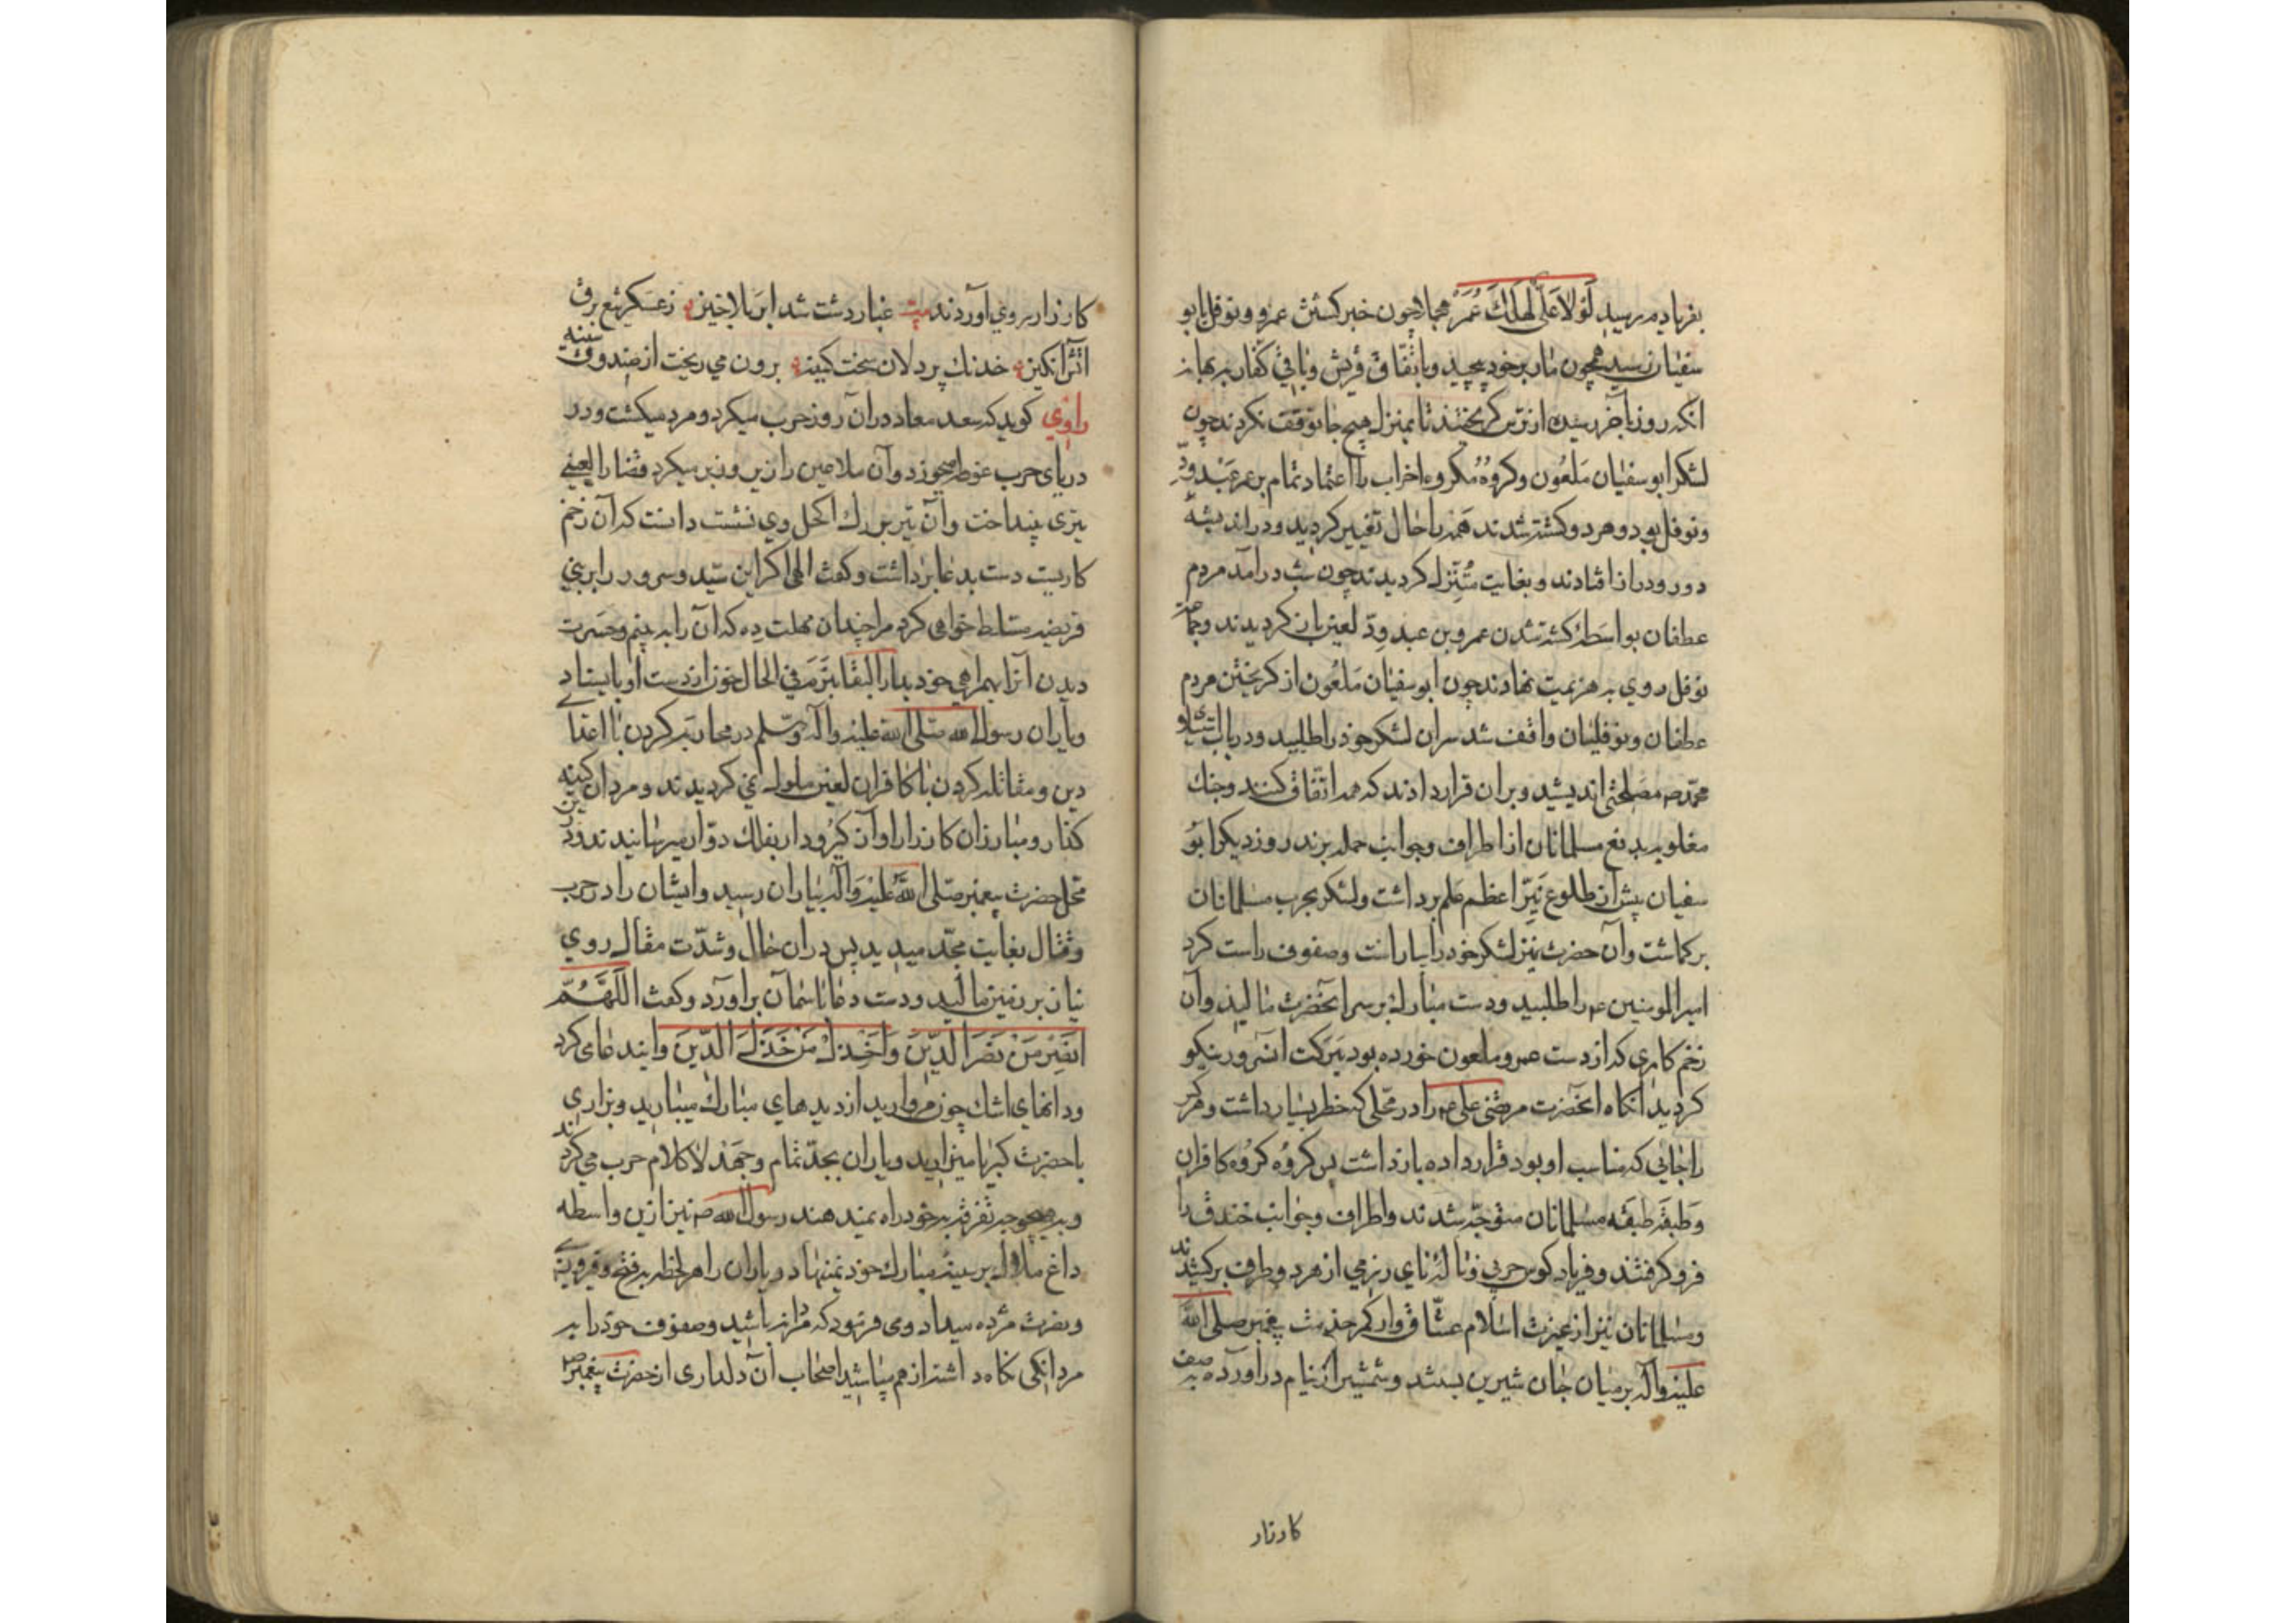 بفریادم رسید لَوْلَا عَلِیٌّ لَهَلَكَ عُمَرُ چون خبر کشتن عمرو و نوفل بابو
سفیان رسید همچون مار بر خود بپیچید و باتفاق قریش و باقی کفار
انکه روز بآخر رسیده از ترس کریختند تا بمنزل هیچ جا توقف نکردند چون
لشکر ابو سفیان مَلعُون و کروه مکروه احزاب را اعتماد تمام بر عمرو عَبْدوَدّ
و نوفل بود و هر دو کشته شدند همه را حال تغییر کردید و در اندیشهٔ
دور و دراز افتادند و بغایت مُتَزلزل کردیدند چون شب درآمد مردم
عطفان بواسَطهٔ کشته شدن عمرو بن عبد ودّ لعین باز کردیدند و جماعت
نوفل روی به هزیمت نهادند چون ابو سفیان مَلعُون از کریختن مردم
عطفان و نوفلیان واقف شد سران لشکر خود را طلبید و در باب
محمّد ص مصلحتی اندیشید و بران قرار دادند که همه اتفاق کنند و جنك
مغلوبه بدفع مسلمانان از اطراف و جوانب حمله برند روز دیکر ابو
سفیان پیش از طلوع نَیّر اعظم علم برداشت و لشکر بحرب مسلمانان
برکماشت و آن حضرت نیز لشکر خود را بیاراست و صفوف راست کرد
امیر المومنین ع را طلبید و دست مبارك بر سر آنحضرت مالید و آن
زخم کاری که از دست عمرو ملعون خورده بود ببرکت آنسرور نیکو
کردید آنکاه آنحضرت مرتضی علی را در محلّی که خطر بسیار داشت و هر کس
را جائی که مناسب او بود قرار داده بازداشت پس کروه کروه کافران
و طبقه طبقه مسلمانان متوجّه شدند و اطراف و جوانب خندق را
فرو کرفتند و فریاد کوس حربی و نالهٔ نای رزمی از هر دو طرف برکشیدند
و مسلمانان نیز از عزت اسلام عشاق وار کمر خدمت پیغمبر صلی الله
علیه و آله بر میان جان شیرین بستند و شمشیر از نیام درآورده
کارزار
کارزار روی آوردند بیت غبار دشت شد ابر بلاخیز ز عسکر تیغ برق
آتش انکیز خدنك پردلان سخت کینه برون می ریخت از صندوق سینه
راوی کوید که سعد معاذ در آن روز حرب میکرد و مرد میکشت و در
دریای حرب غوطه میخورد و آن ملاعین را زیر و زبر میکرد قضا را لعینی
تیری بینداخت و آن تیر بر رك اکحل وی نشست دانست که آن زخم
کاریست دست بدعا برداشت و کفت الهی اکر این سیّد و سرور را بر بنی
قریضه مسلط خواهی کرد مرا چندان مهلت ده که آن را به بینم و حسرت
دیدن آنرا بهمراهی خود بدار البقا نبرم فی الحال خون از دست او بایستاد
و یاران رسول الله صلی الله علیه و آله و سلم در محاربه کردن با اعدا
دین و مقاتله کردن با کافران لعین ملول نمی کردیدند و مردان کینه
کذار و مبارزان کارزار آواز کیر و دار بفلك دوّار میرسانیدند
محل حضرت پیغمبر صلی الله علیه و آله بیاران رسید و ایشان را در حرب
و قتال بغایت مجدّ میدید پس در آن حال و شدّت مقال روی
نیاز بر زمین مالید و دست دعا تا آسمان برآورد و کفت اللّٰهُمَّ
انْصُرْ مَنْ نَصَرَ الدّینَ وَاخْذُلْ مَنْ خَذَلَ الدّینَ و اینه دعا می کرد
و دانهای اشك چون مروارید از دیدهای مبارك میبارید و بزاری
با حضرت کبریا مینالید و یاران بجدّ تمام و جهد لا کلام حرب می کردند
و بهیچوجه تفرقه بخود راه نمیدهند رسول الله ص نیز ازین واسطه
داغ ملال بر سینه مبارك خود نمینهاد و یاران را هر لحظه بفتح و فیروزی
و نصرت مژده میداد و می فرمود که مردانه باشید و صفوف خود را به
مردانکی نکاه داشته از هم مپاشید اصحاب آن دلداری از حضرت پیغمبر ص